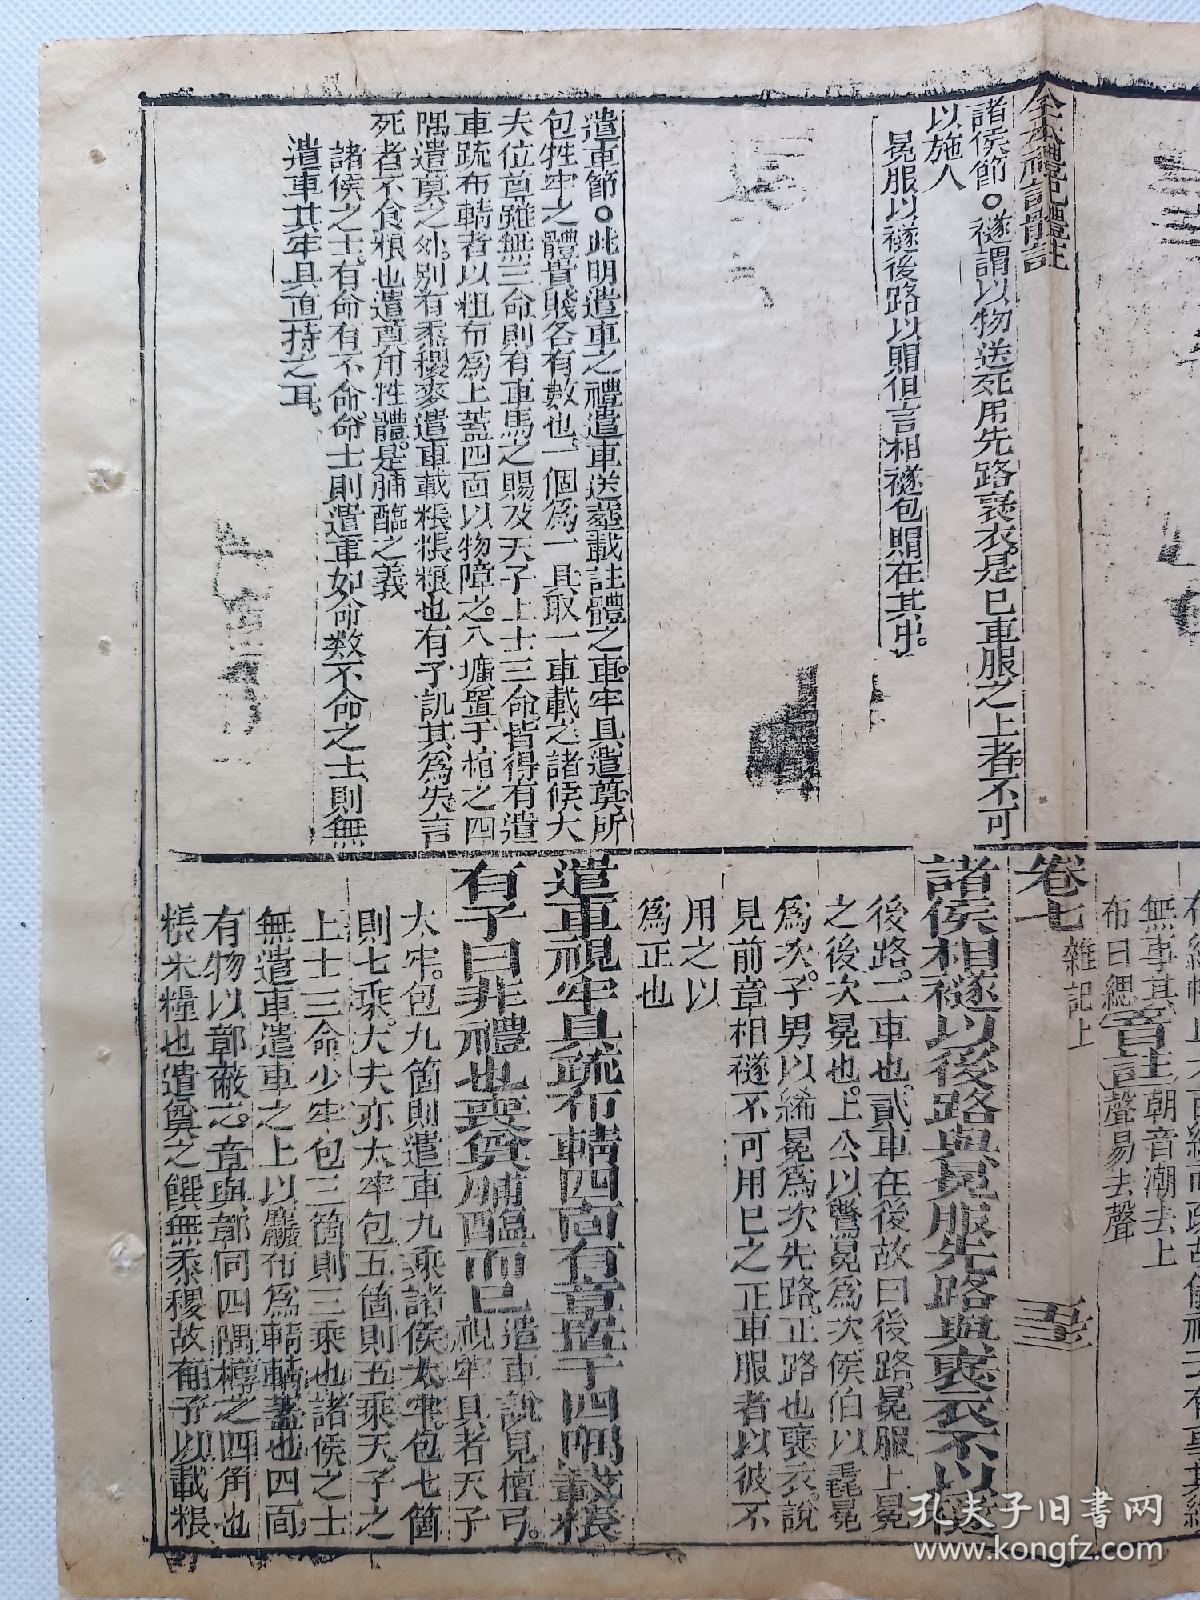 全本禮記體註
諸侯節○襚謂以物送死用先路襃衣是巳車服之上者不可
以施人
冕服以襚後路以賵但言相襚包賵在其中
遣車節○此明遣車之禮遣車送塟載牲體之車牢具遣奠所
包牲牢之體貴賤各有數也一個爲一具取一車載之諸侯大
夫位尊雖無三命則有車馬之賜及天子上士三命皆得有遣
車疏布輤者以粗布爲上蓋四面以物障之入壙置于棺之四
隅遣奠之外別有黍稷麥遣車載粻粻粮也有子訊其爲失言
死者不食粮也遣奠用牲體是脯醢之義
諸侯之士有命有不命命士則遣車如命数不命之士則無
遣車其牢具亟持之耳
無事其
布曰緦音註朝音潮去上
聲易去聲
卷七
雜記上
諸侯相襚以後路與冕服先路與襃衣不以襚
後路二車也貳車在後故曰後路冕服上冕
之後次冕也上公以鷩冕爲次侯伯以毳冕
爲次子男以絺冕爲次先路正路也襃衣說
見前章相襚不可用巳之正車服者以彼不
用之以
爲正也
遣車視牢具疏布輤四面有章置于四隅載粻
有子曰非禮也喪奠脯醢而巳遣車說見檀弓
視牢具者天子
太牢包九箇則遣車九乘諸侯太牢包七箇
則七乘大夫亦太牢包五箇則五乘天子之
上士三命少牢包三箇則三乘也諸侯之士
無遣車遣車之上以麤布爲輤輤蓋也四面
有物以鄣蔽之章與鄣同四隅槨之四角也
粻米糧也遣奠之饌無黍稷故有子以載粻
孔夫子旧书网
www.kongfz.com